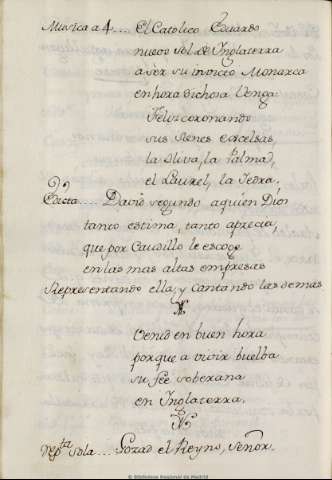 Musica a 4.... El Catolico Eduardo
nuevo sol de Inglaterra
a ser su invicto Monarca
en hora dichosa Venga
Feliz coronando
sus sienes excelsas,
la Oliva, la Palma,
el Laurel, la Iedra.
Dicta.... David segundo aquien Dios
tanto estima, tanto aprecia,
que por Caudillo le escoge
en las mas altas empresas
Representando ella, y Cantando las demas
Venid en buen hora
porque a vivir buelba
su feè soberana
en Inglaterra.
Nepta. Sola.... Gozad el Reyno, Señor.
© Biblioteca Regional de Madrid